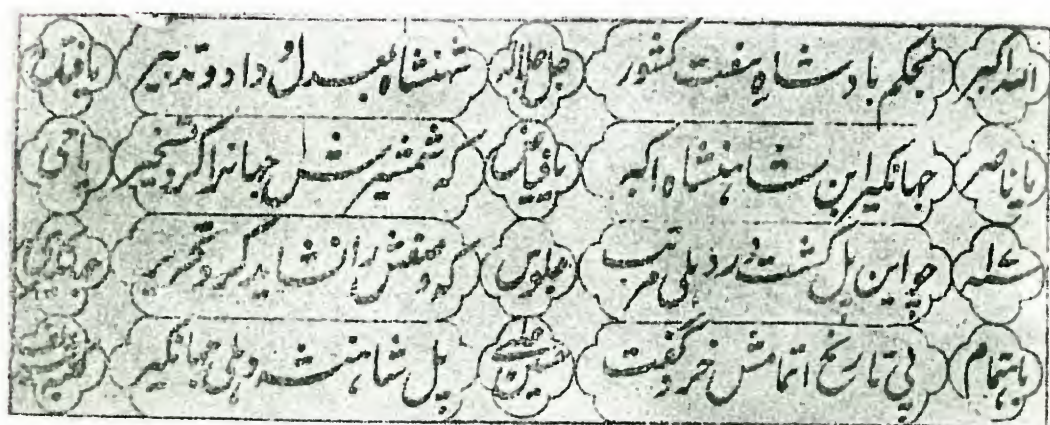 الله اکبر بحکم بادشاه هفت کشور جل جلاله شهنشاه بعدل و داد و تدبیر یا فتاح
یا ناصر جهانگیر ابن شاهنشاه اکبر یا فیاض که شمشیرش جهانرا کرد تسخیر یا حی
سنه ۱۷ چو این پل گشت در دهلی مرتب جلوس که وصفش را نشاید کرد تحریر جهانگیری
باهتمام پی تاریخ اتمامش خرد گفت حسین پل شاهنشه دهلی جهانگیر